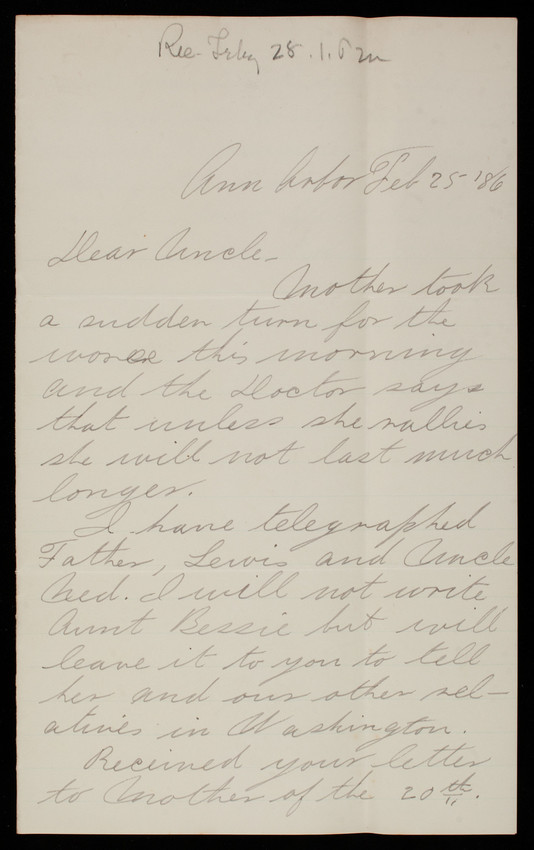 Rec. Feby 28. 1. P m
Ann Arbor Feb 25 '86
Dear Uncle-
Mother took
a sudden turn for the
worse this morning
and the Doctor says
that unless she rallies
she will not last much
longer.
I have telegraphed
Father, Lewis and Uncle
Ned. I will not write
Aunt Bessie but will
leave it to you to tell
her and our other rel-
atives in Washington.
Received your letter
to Mother of the 20th.